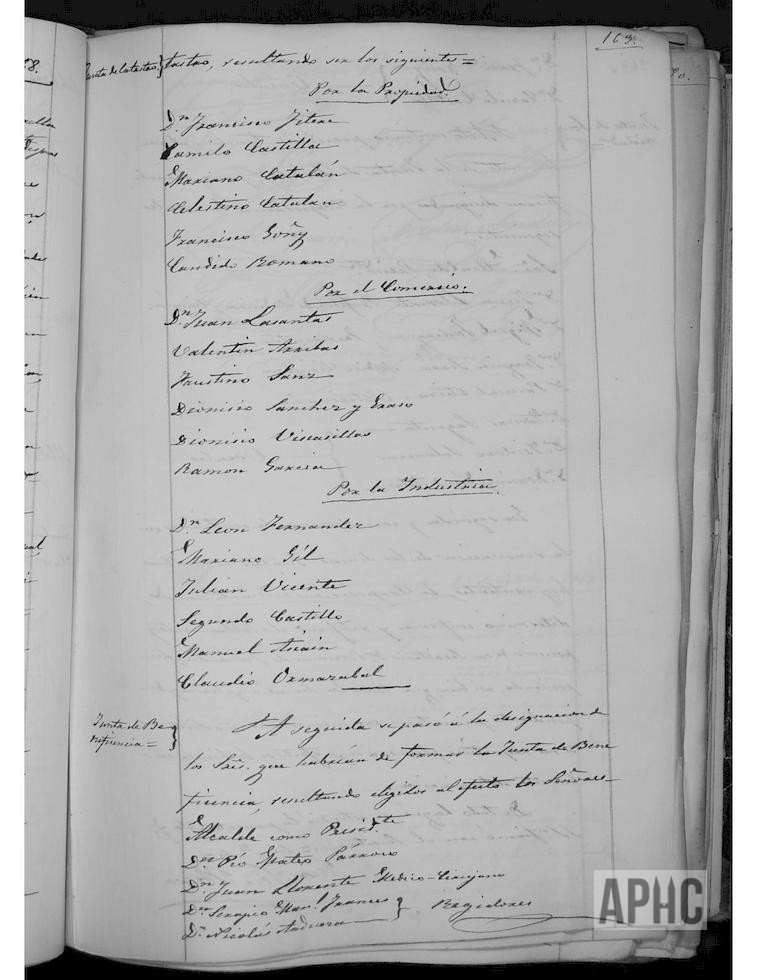 163.
Junta de Catastro. } tastro, resultando ser los siguientes =
Por la Propiedad.
Dn. Francisco Jitera
Camilo Castilla
Mariano Catalán
Celestino Catalan
Francisco Goñy
Candido Romano
Por el Comercio.
Dn. Juan Lasantas
Valentin Arribas
Faustino Sanz
Dionisio Sanchez y Eraso
Dionisio Viscasillas
Ramon Garcia
Por la Industria.
Dn. Leon Fernandez
Mariano Gil
Julian Vicente
Segundo Castillo
Manuel Asiain
Claudio Ormazabal
Junta de Be
neficencia =
A seguida se pasó á la designacion de
los Sres. que habrian de formar la Junta de Bene
ficencia, resultando elegidos al efecto los Señores
Alcalde como Presidte.
Dn. Pío Mateo Párroco
Dn. Juan Llorente Medico-Cirujano
Dn. Sergio Manl. Frances } Regidores
Dn. Nicolás Anduera
APHC